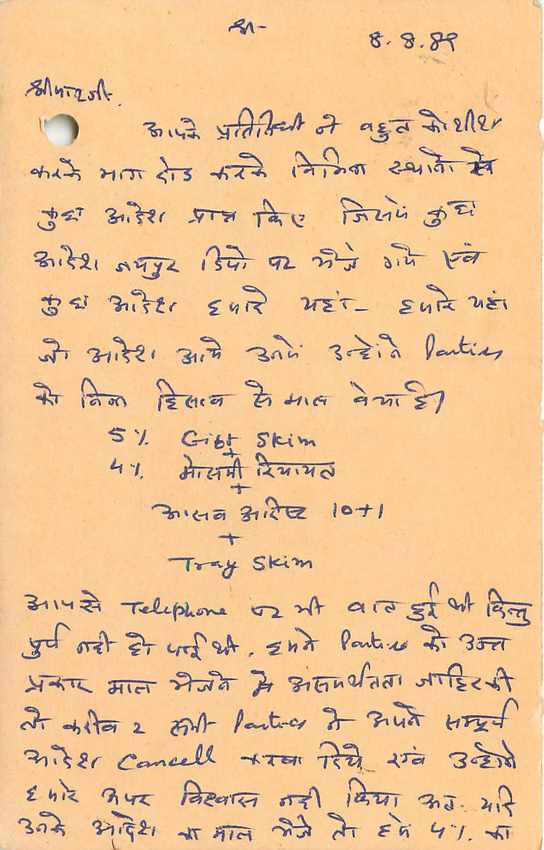 श्री-
8.8.89
श्रीमानजी.
आपके प्रतिनिधी ने बहुत कोशीश
करके भाग दोड करके विभिन्न स्थानो से
कुछ आदेश प्राप्त किए जिसमें कुछ
आदेश जयपुर डिपो पर भेजे गये एवं
कुछ आदेश हमारे यहां - हमारे यहां
जो आदेश आये उनमें उन्होंने Parties
को निम्न हिसाब से माल बेचा है।
5% Gift Skim
+
4% मौसमी रियायत
+
आसव अरिष्ट 10+1
+
Tray Skim
आपसे Telephone पर भी बात हुई थी किन्तु
पूर्ण नही हो पाई थी. हमने Parties को उक्त
प्रकार माल भेजने मे असमर्थतता जाहिर की
तो करीब 2 सभी Parties ने अपने सम्पूर्ण
आदेश Cancell करवा दिये एवं उन्होने
हमारे उपर विश्वास नही किया अब यदि
उनके आदेश का माल भेजे तो हमे 4% का